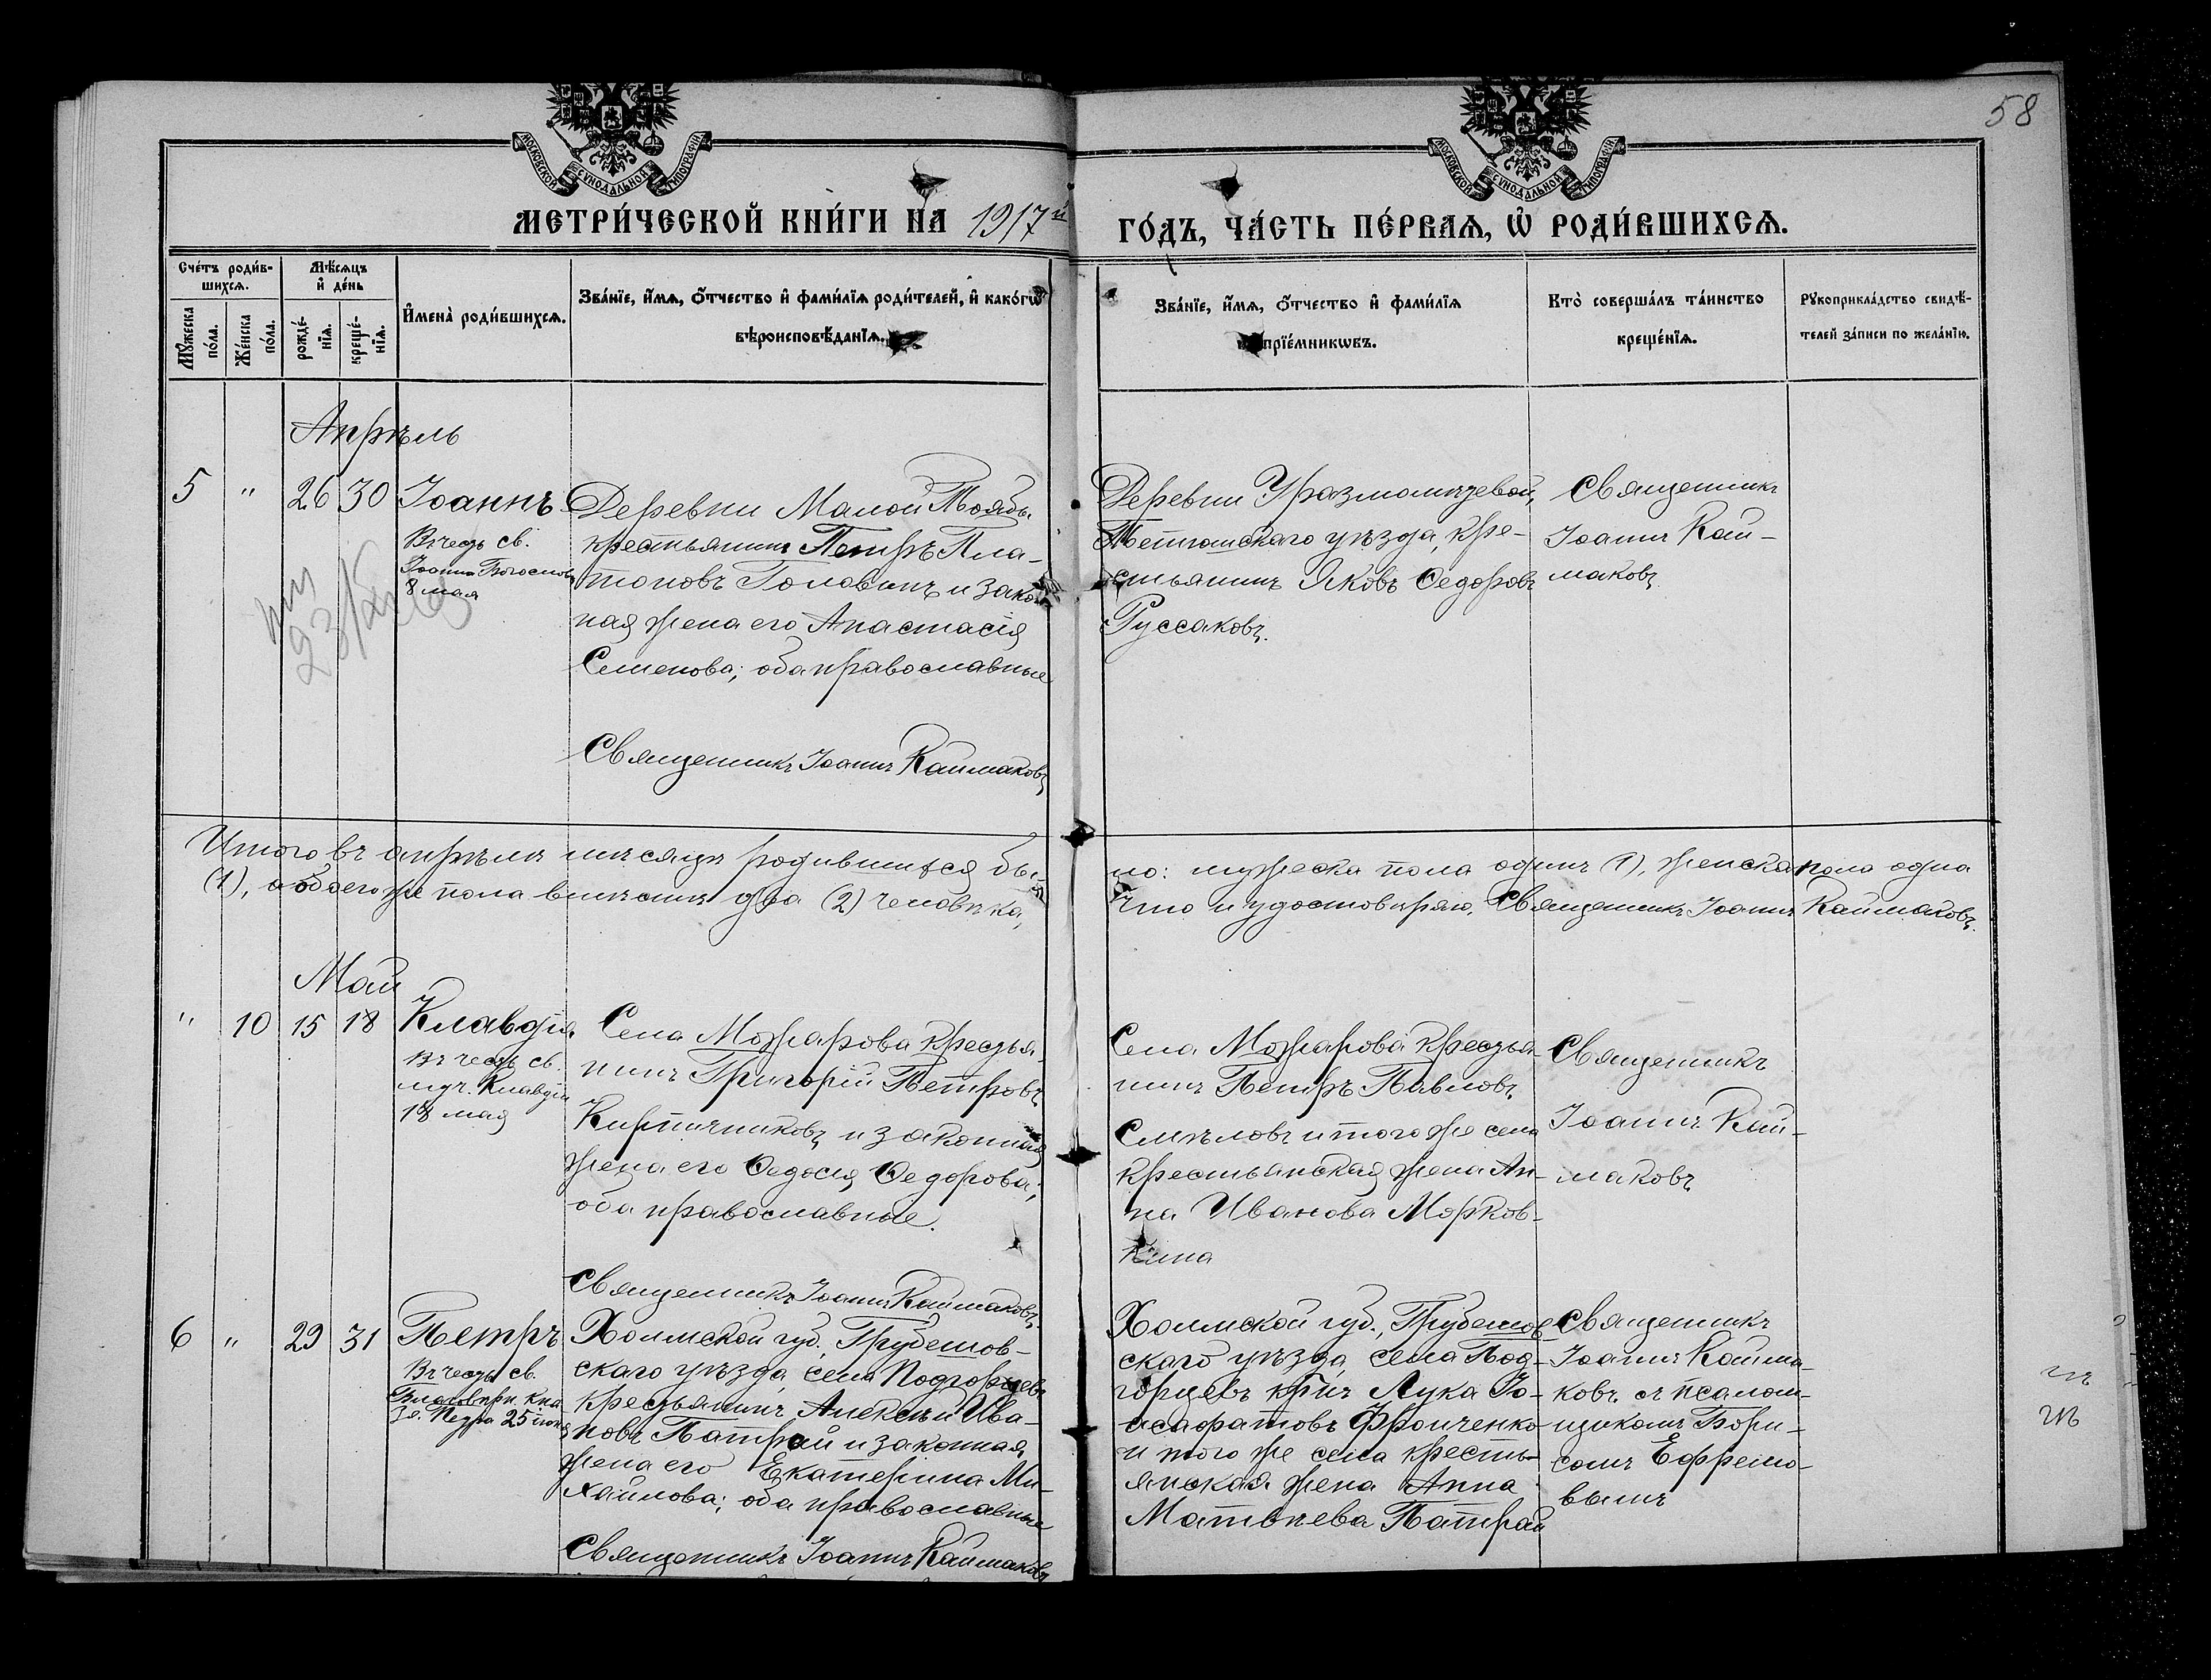 58
МОСКОВСКОЙ СѴНОДАЛЬНОЙ ТИПОГРАФІИ
МОСКОВСКОЙ СѴНОДАЛЬНОЙ ТИПОГРАФІИ
МЕТРИ́ЧЕСКОЙ КНИ́ГИ НА 1917й
ГО́ДЪ, ЧА́СТЬ ПЕ́РВАѦ, Ѿ РОДИ́ВШИХСѦ.
Сче́тъ роди́в-
шихсѧ.
Мꙋжеска по́ла.
Же́нска по́ла.
Мѣ́сѧцъ
и҆ де́нь
рожде́-
нїѧ.
креще́-
нїѧ.
И҆мена̀ роди́вшихсѧ.
Зва́нїе, и҆́мѧ, ѻ҆́тчество и҆ фами́лїѧ роди́телей, и҆ како́гѡ
вѣроисповѣ́данїѧ.
Зва́нїе, и҆́мѧ, ѻ҆́тчество и҆ фами́лїѧ
прїе́мникѡвъ.
Кто̀ соверша́лъ та́инство
креще́нїѧ.
Рꙋкоприкла́дство свидѣ́-
телей за́писи по жела́нїю.
Апрѣль
5 " 26 30 Іоаннъ
Въ честь св.
Іоанна Богослова
8 мая
Деревни Малой Тоябы
крестьянинъ Петръ Пла-
тоновъ Головинъ и закон-
ная жена его Анастасія
Семенова; оба православные
Священникъ Іоаннъ Каймаковъ
Деревни Уразмаметевой,
Тетюшскаго уѣзда, кре-
стьянинъ Яковъ Ѳедоровъ
Руссаковъ.
Священникъ
Іоаннъ Кай-
маковъ
Итого въ апрѣлѣ мѣсяцѣ родившихся бы-
ло: мужеска пола одинъ (1), женска пола одна
(1), а обоего же пола вмѣстѣ два (2) человѣка,
что и удостовѣряю, Священникъ Іоаннъ Каймаковъ.
Май
" 10 15 18 Клавдія
Въ честь св.
муч. Клавдіи
18 мая
Села Можарова крестья-
нинъ Григорій Петровъ
Кирпичниковъ и законная
жена его Ѳедосія Ѳедорова;
оба православные.
Священникъ Іоаннъ Каймаковъ.
Села Можарова крестья-
нинъ Петръ Павловъ
Смѣловъ и того же села
крестьянская жена Ан-
на Иванова Морков-
кина
Священникъ
Іоаннъ Кай-
маковъ
6 " 29 31 Петръ
Въ честь св.
Благовѣрн. кня-
зя Петра 25 іюня
Холмской губ., Грубешов-
скаго уѣзда, села Подгорцевъ
крестьянинъ Алексѣй Ива-
новъ Патрай и законная
жена его Екатерина Ми-
хайлова; оба православные
Священникъ Іоаннъ Каймаковъ
Холмской губ., Грубешов-
скаго уѣзда, села Под-
горцевъ кр-нъ Лука Іо-
асафатовъ Фронченко
и того же села кресть-
янская жена Анна
Матвѣева Патрай
Священникъ
Іоаннъ Кайма-
ковъ съ псалом-
щикомъ Бори-
сомъ Ефремо-
вымъ